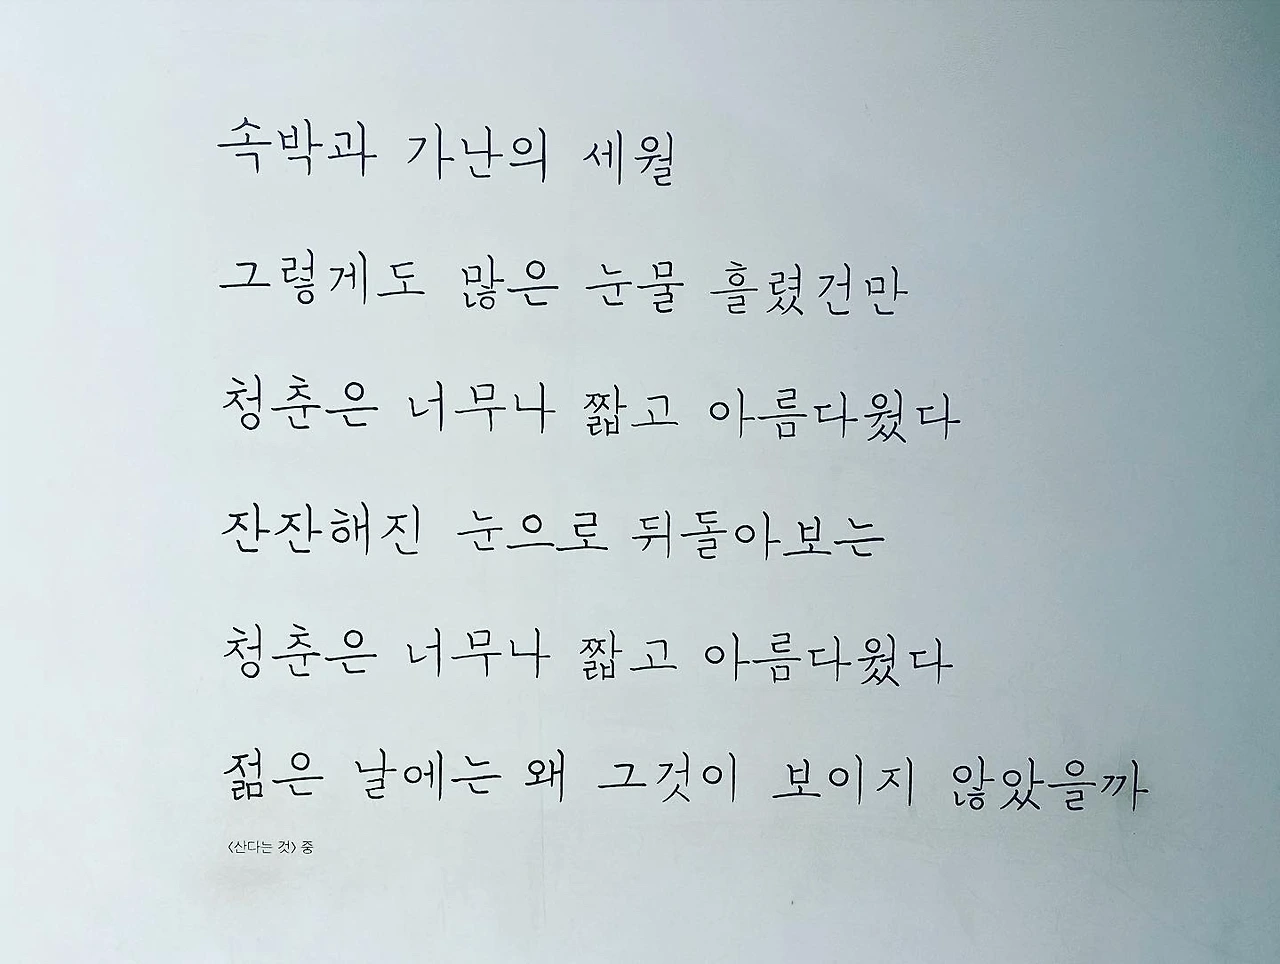 속박과 가난의 세월
그렇게도 많은 눈물 흘렸건만
청춘은 너무나 짧고 아름다웠다
잔잔해진 눈으로 뒤돌아보는
청춘은 너무나 짧고 아름다웠다
젊은 날에는 왜 그것이 보이지 않았을까
<산다는 것> 중